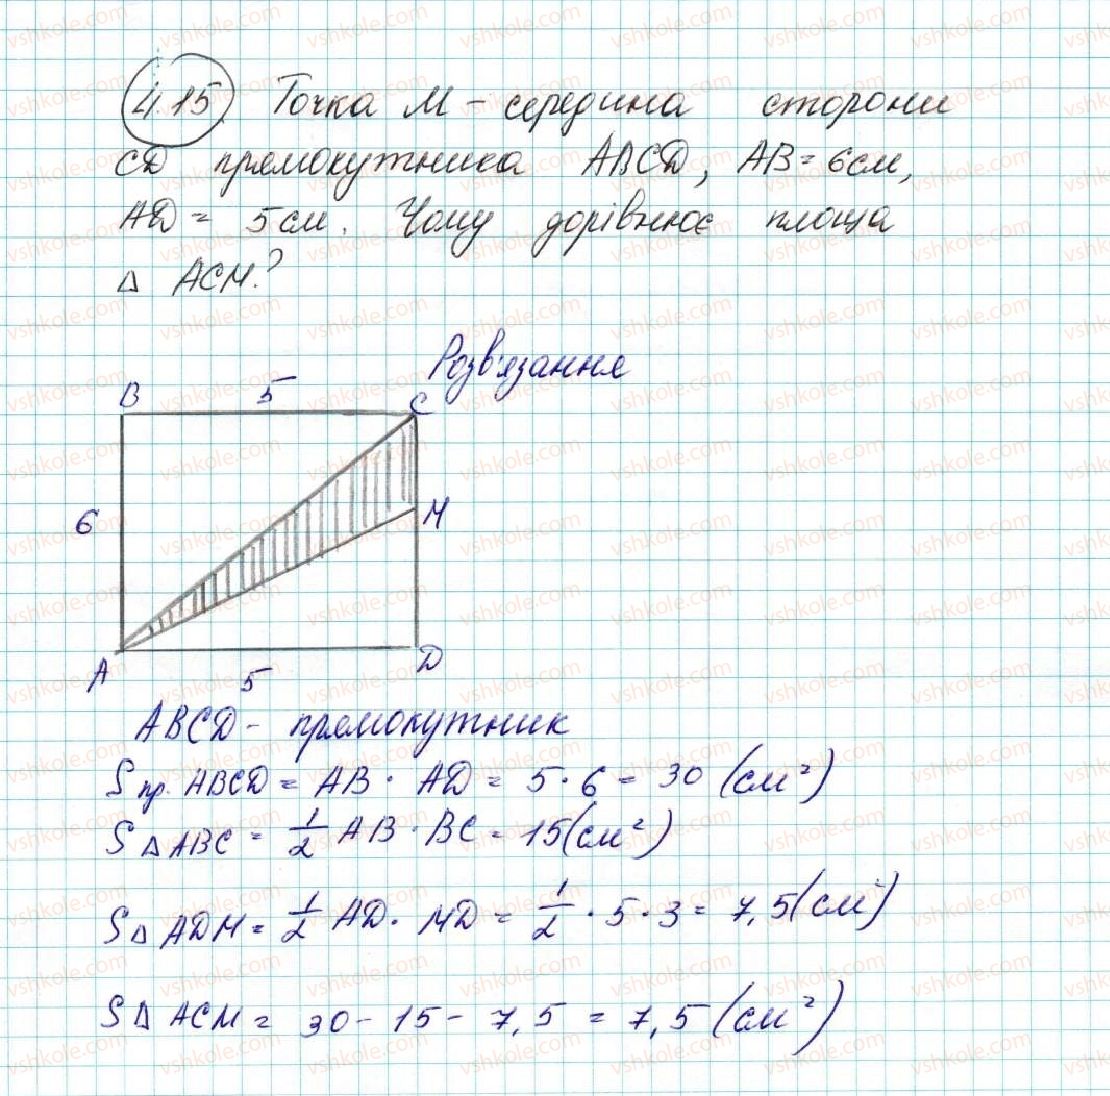 4.15 Точка М – середина сторони
CD прямокутника ABCD, AB = 6см,
AD = 5см. Чому дорівнює площа
△ ACM?
Розв'язання
B 5 C
6 M
A 5 D
ABCD – прямокутник
S пр. ABCD = AB · AD = 5 · 6 = 30 (см²)
S △ ABC = 1/2 AB · BC = 15(см²)
S △ ADM = 1/2 AD · MD = 1/2 · 5 · 3 = 7,5(см²)
S △ ACM = 30 – 15 – 7,5 = 7,5 (см²)
vshkole.com